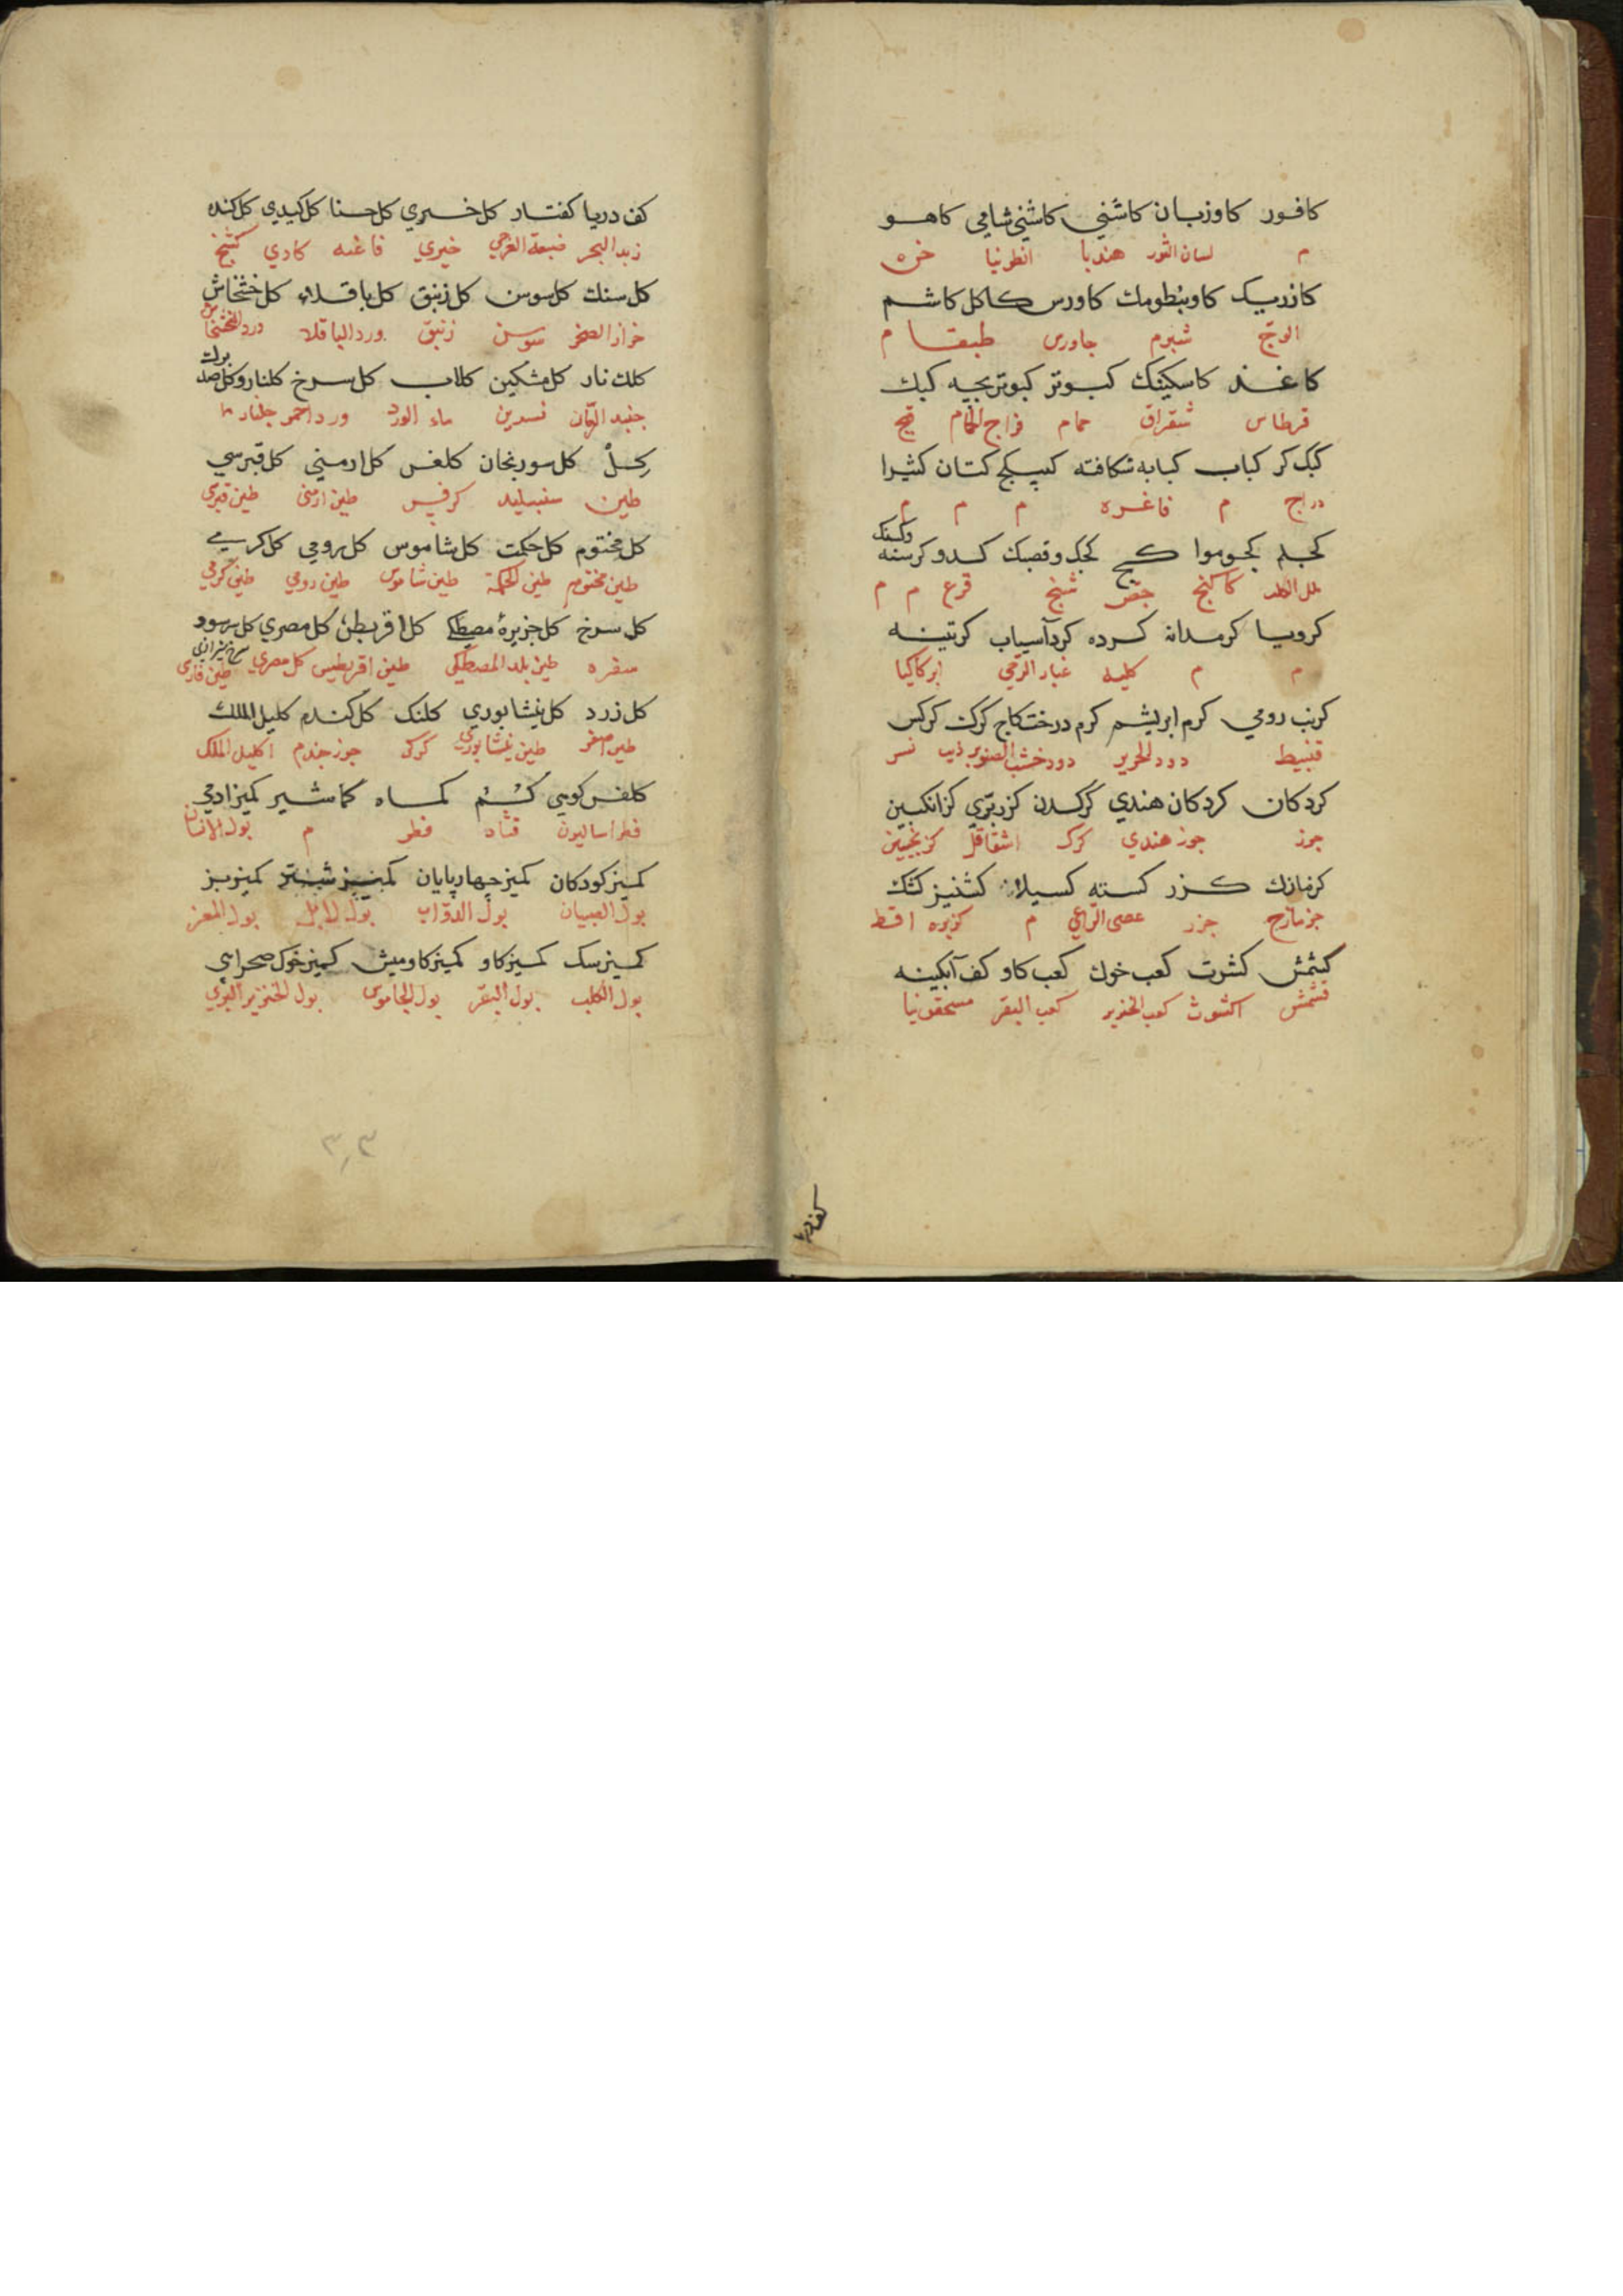 كافور كاوزبان كاشني كاشني شامي كاهو
م لسان الثور هندبا انطونيا
كازريك كاوبنطومك كاورس كاكل كاشم
الوج شبرم جاورس طبقا م
كاغذ كاسكينك كبوتر كبوتر بچه كبك
قرطاس شقراق حمام فراخ الحمام قبج
كبك كر كباب كبابه شكافته كتان كثيرا
دراج م فاغره م م م
كج كدو كرسنه
كاكنج جص قرع م م
كرويا كرمدانه كرده كردآسياب كرتينه
م م كليه غبار الرحي ابركاكيا
كرنب رومي كرم ابريشم كرم درخت كاج كرك كركس
قنبيط دود الحرير دود خشب الصنوبر ذيب نسر
كردكان كردكان هندي كركدن كزر برّي كزانكبين
جوز جوز هندي كرك اشقاقل كزنجبين
كزمازك كزر كسته كسيلا كشنيز كشك
جزمازج جزر عصى الراعي م كزبره اقط
كشمش كشوت كعب خوك كعب كاو كف آبكينه
قشمش اكشوث كعب الخنزير كعب البقر مسحقونيا
كف دريا
كف دريا كفتار كل خيري كل حنا كل كيدي كل كنده
زبد البحر ضبعة العرجي خيري فاغيه كادي
كل سنك كل سوسن كل زنبق كل باقلاء كل خشخاش
حزاز الصخر سوسن زنبق ورد الباقلا ورد الخشخاش
كلك نار كل مشكين كلاب كل سرخ كلنار وكل صد برك
جنبد الرمّان نسرين ماء الورد ورد احمر جلنار م
كل كل سورنجان كلفس كل ارمني كل قبرسي
طين سنبليد كرفس طين ارمنى طين قبرسي
كل مختوم كل حكمت كل شاموس كل رومي كل كرمي
طين مختوم طين الحكمة طين شاموس طين رومي طين كرمي
كل سرخ كل جزيرة مصطكي كل اقريطن كل مصري كل سرخ شيرازي
مغره طين بلد المصطكي طين اقريطيس كل مصري طين فارسي
كل زرد كل نيشابوري كلنك كل كندم كليل الملك
طين اصفر طين نيشابوري كركى جوز جندم اكليل الملك
كلفس كوهي كماه كماشير كميز ادمي
فطراساليون قثاه فطر م بول الانسان
كميز كودكان كميز چهارپايان كميز شتر كميز بز
بول الصبيان بول الدوّاب بول الابل بول المعز
كميز سك كميز كاو كميز كاوميش كميز خوك صحرايي
بول الكلب بول البقر بول الجاموس بول الخنزير البري